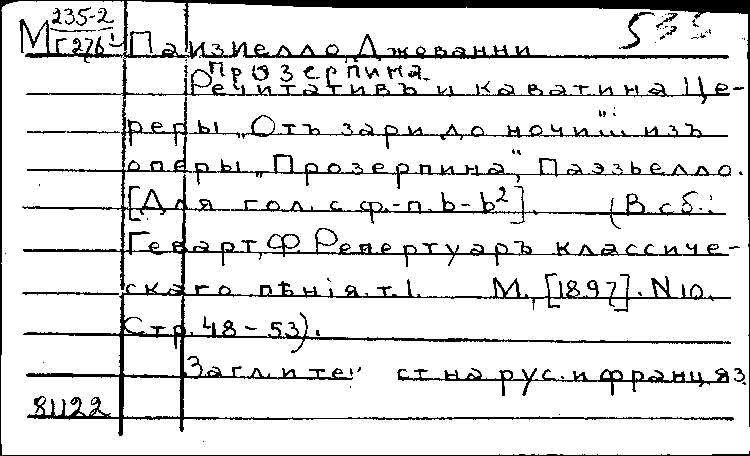 М 235-2 535
Г276 Паизиелло, Джованни
Прозерпина.
Речитативъ и каватина Це-
реры „Отъ зари до ночи“ изъ
оперы „Прозерпина“, Паэзьелло.
[Для гол. с ф.-п. b-b²]. (В сб.:
Геварт, Ф. Репертуаръ классиче-
скаго пѣнія. т. I. М., [1897]. N 10.
Стр. 48-53).
Загл. и на рус. и франц. яз.
81122